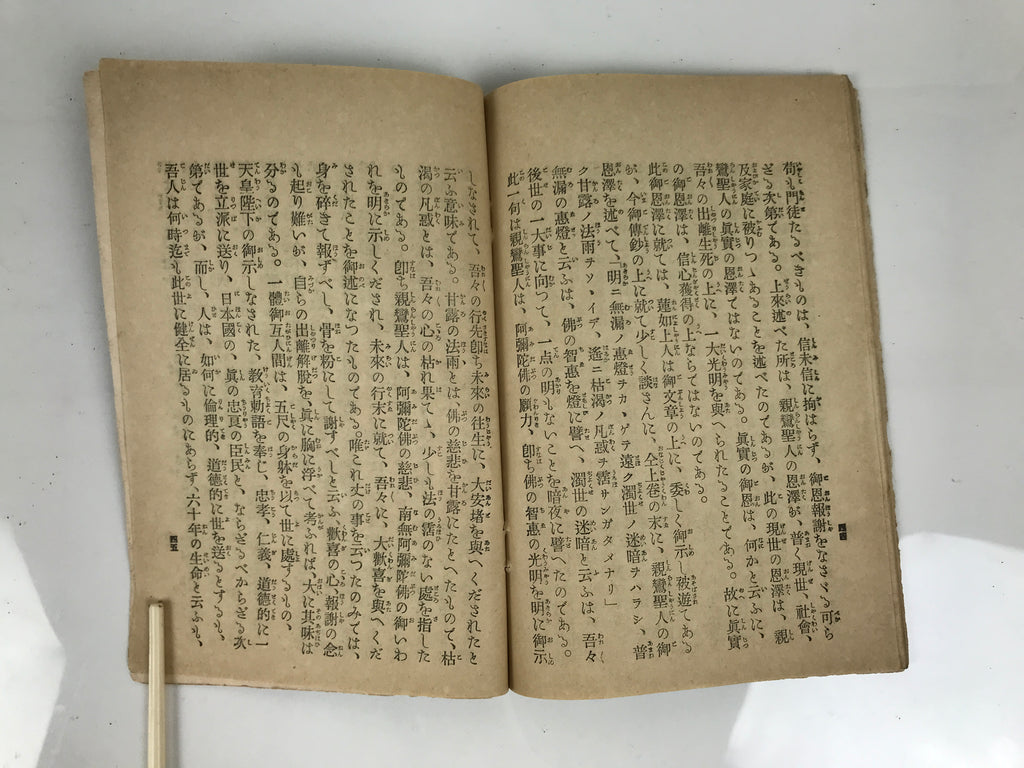 苟も門徒たるべきものは、信未信に拘はらず、御恩報謝をなさゞる可ら
ざる次第である。上來述べた所は、親鸞聖人の恩澤が、普く現世、社會、
及家庭に被りつゝあることを述べたのであるが、此の現世の恩澤は、親
鸞聖人の眞實の恩澤ではないのである。眞實の御恩は、何かと云ふに、
吾々の出離生死の上に、一大光明を與へられたことである。故に眞實
の御恩澤は、信心獲得の上ならではないのである。
此御恩澤に就ては、蓮如上人は御文章の上に、委しく御示し被遊てある
が、今御傳鈔の上に就て少しく談さんに、仝上卷の末に、親鸞聖人の御
恩澤を述べて、「明ニ無漏ノ惠燈チカヽゲテ遠ク濁世ノ迷暗チハラシ、普
ク甘露ノ法雨チソヽイデ、遙ニ枯渇ノ凡惑ヲ霑サンガタメナリ」
無漏の惠燈と云ふは、佛の智惠を燈に譬へ、濁世の迷暗と云ふは、吾々
後世の一大事に向つて、一点の明もないことを暗夜に譬へたのである。
此一句は親鸞聖人は、阿彌陀佛の願力、卽ち佛の智惠の光明を明に御示
四四
しなされて、吾々の行先卽ち未來の往生に、大安堵を與へくだされたと
云ふ意味である。甘露の法雨とは、佛の慈悲を甘露にたとへたもので、枯
渇の凡惑とは、吾々の心の枯れ果てゝ、少しも法の霑のない處を指した
ものである。卽ち親鸞聖人は、阿彌陀佛の慈悲、南無阿彌陀佛の御いわ
れを明に示しくだされ、未來の行末に就て、吾々に、大歡喜を與へくだ
されたことを御述になつたものである。唯これ丈の事を云つたのみでは、
身を碎きて報ずべし、骨を粉にして謝すべしと云ふ歡喜の心、報謝の念
も起り難いが、自らの出離解脱を、眞に胸に浮べて考ふれば、大に其味は
分るのである。一體御互人間は、五尺の身躰を以て世に處するもの、
天皇陛下の御示しなされた、敎育勅語を奉じ、忠孝、仁義、道德的に一
世を立派に送り、日本國の、眞の忠良の臣民と、ならざるべからざる次
第であるが、而し、人は、如何に倫理的、道德的に世を送るとするも、
吾人は何時迄も此世に健全に居るものにあらず、六十年の生命と云ふも、
四五